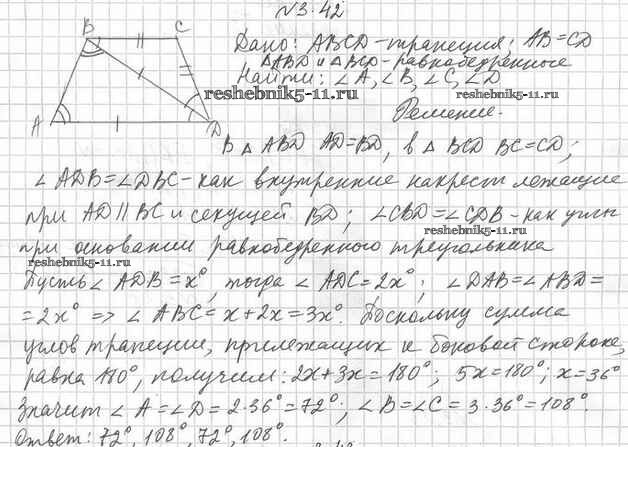 №3.42
B C
Дано: ABCD-трапеция; AB=CD
△ABD и △BCD-равнобедренные
Найти: ∠A, ∠B, ∠C, ∠D
reshebnik5-11.ru
Решение.
A D
В △ ABD AD=BD, в △ BCD BC=CD;
∠ADB=∠DBC-как внутренние накрест лежащие
при AD∥BC и секущей BD; ∠CBD=∠CDB-как углы
reshebnik5-11.ru
при основании равнобедренного треугольника
reshebnik5-11.ru
Пусть ∠ADB=x°, тогда ∠ADC=2x°; ∠DAB=∠ABD=
=2x° => ∠ABC=x+2x=3x°. Поскольку сумма
углов трапеции, прилежащих к боковой стороне,
равна 180°, получим: 2x+3x=180°; 5x=180°; x=36°
Значит ∠A=∠D=2·36°=72°; ∠B=∠C=3·36°=108°.
Ответ: 72°, 108°, 72°, 108°.